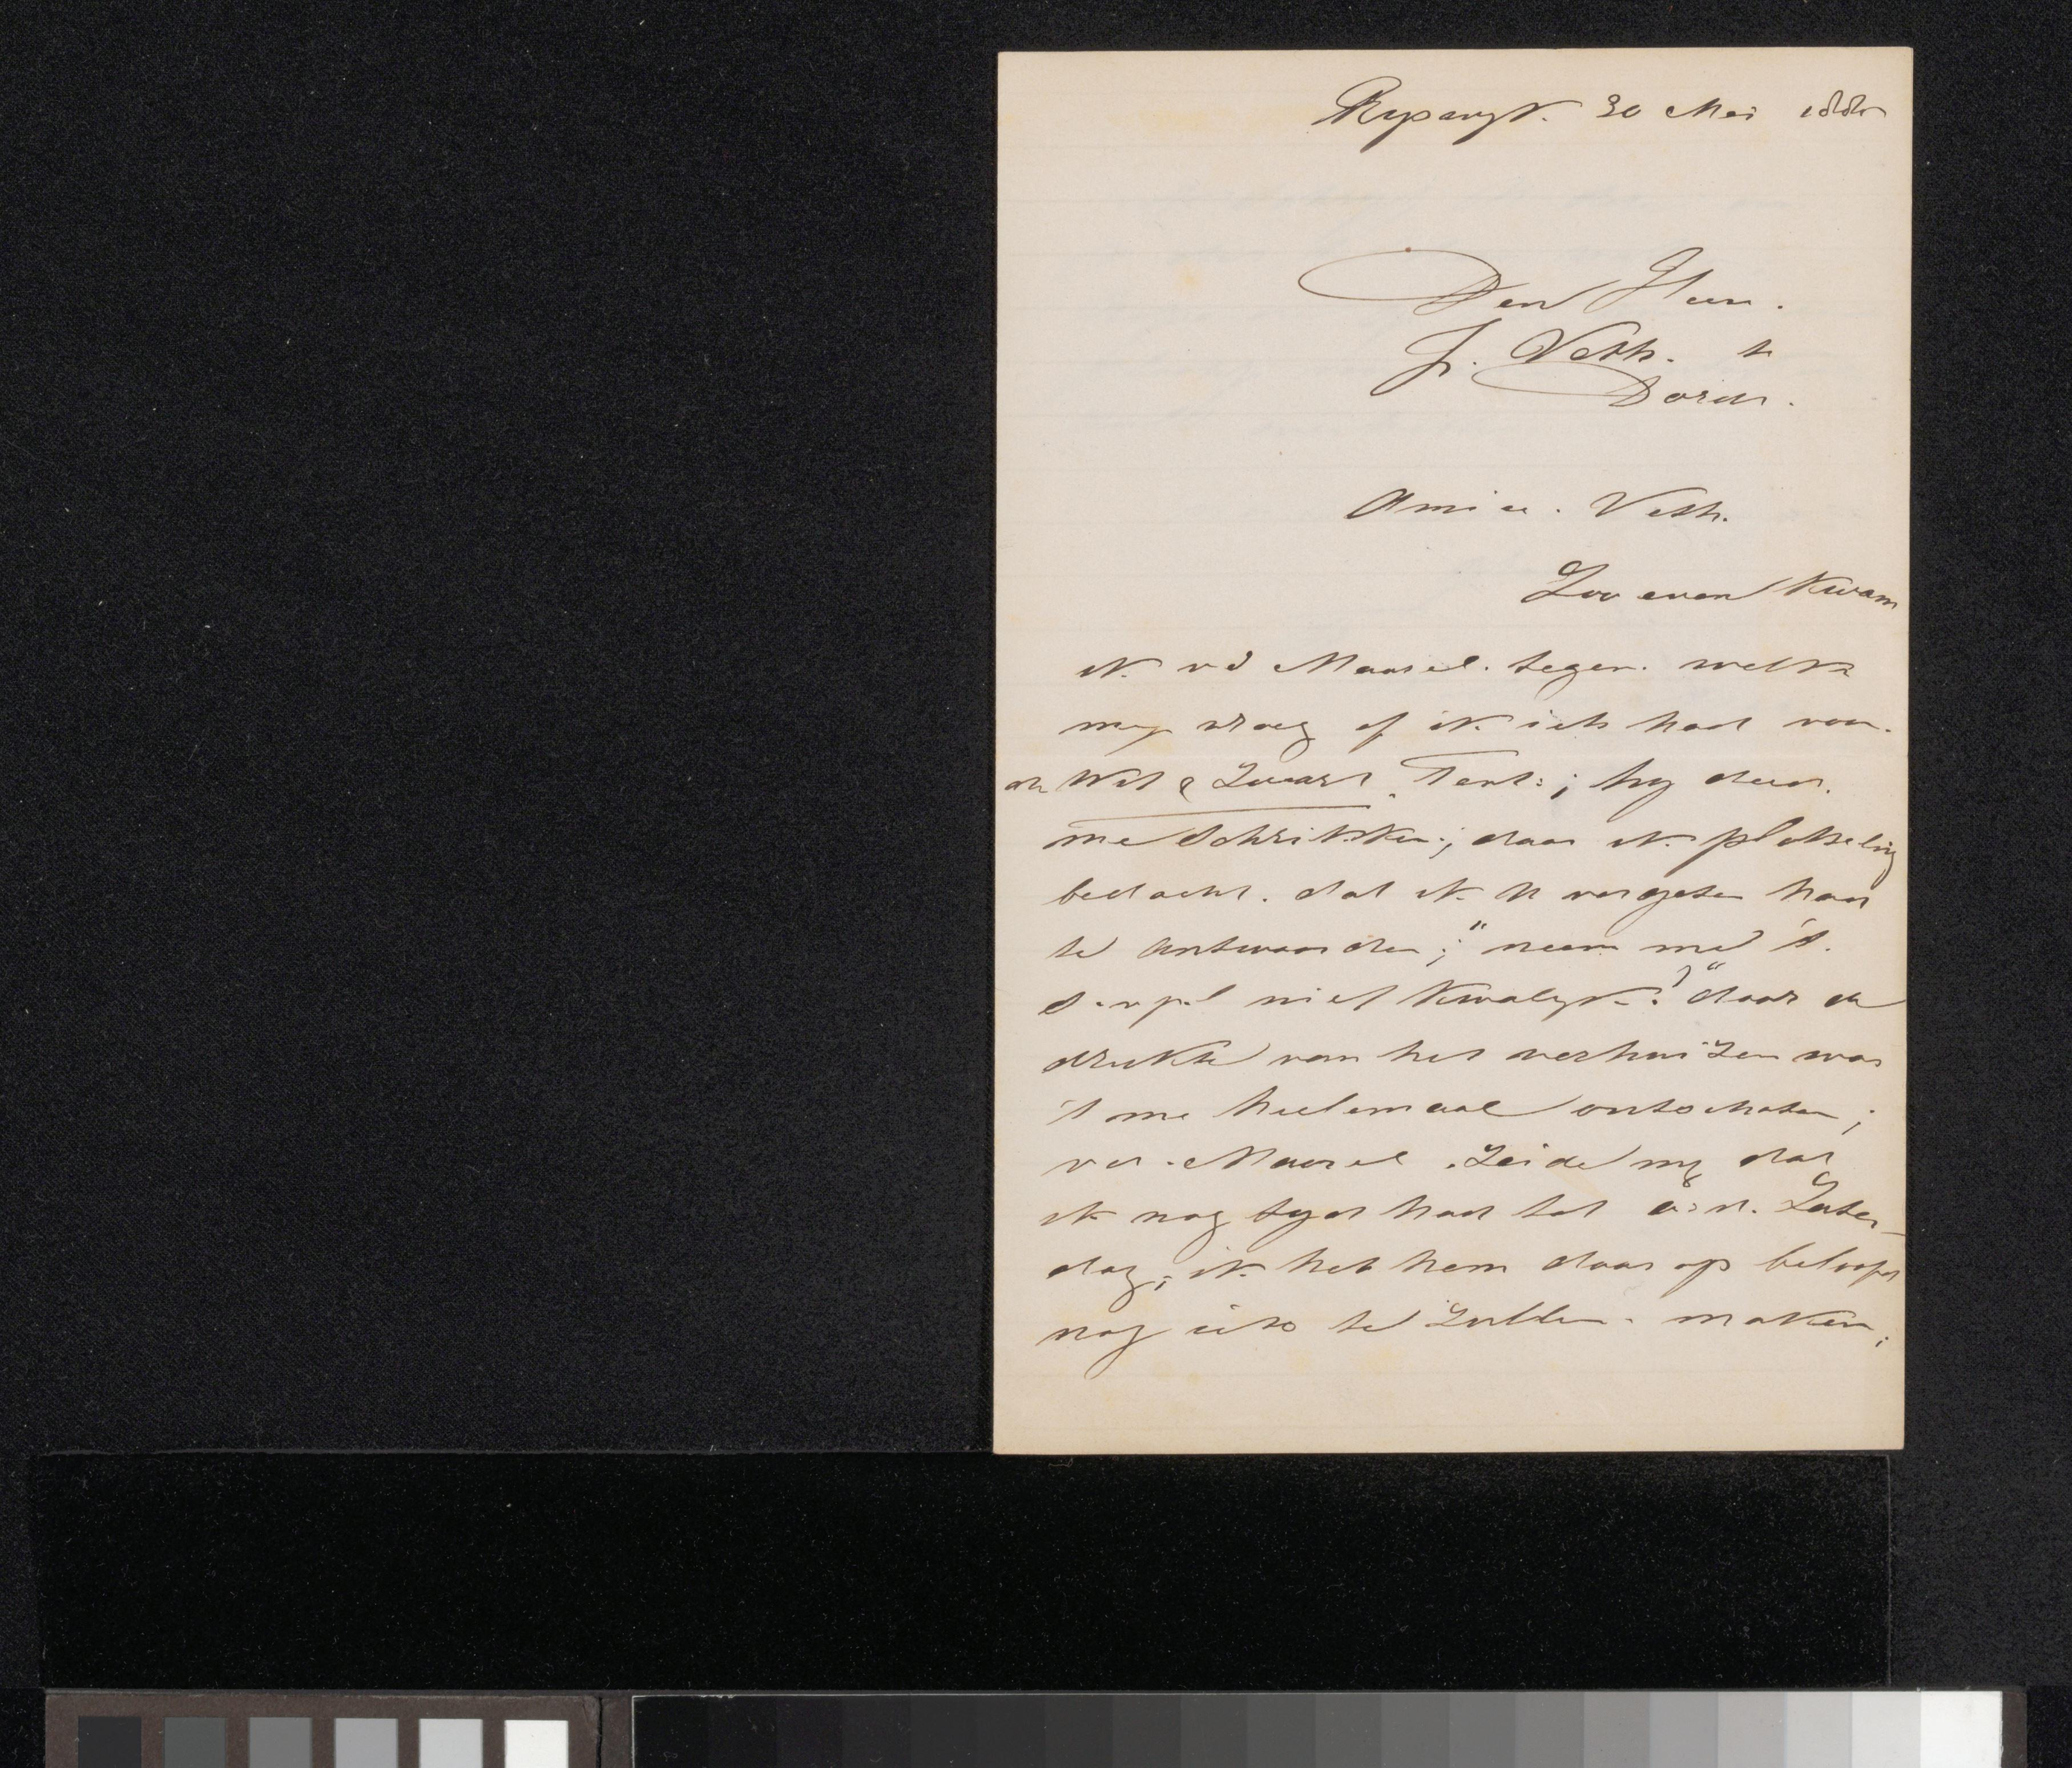 Ryswyk. 30 Mei 188
Den Heer.
J. Veth. te
Dordt.
Amice. Veth.
Zoo even kwam
ik vd Maarel. tegen. welke
my vroeg of ik iets had voor.
de Wit & Zwart Tent:; hy deed.
me schrikken; daar ik plotseling
bedacht. dat ik U vergeten had
te antwoorden; "neem me 't.
s.v.p.l niet kwalyk!" door de
drukte van het verhuizen was
't me heelemaal ontschoten;
vd. Maarel. zeide my dat
ik nog tyd had tot a:s. Zater-
dag; ik heb hem daar op beloofd
nog iets te zullen. maken;